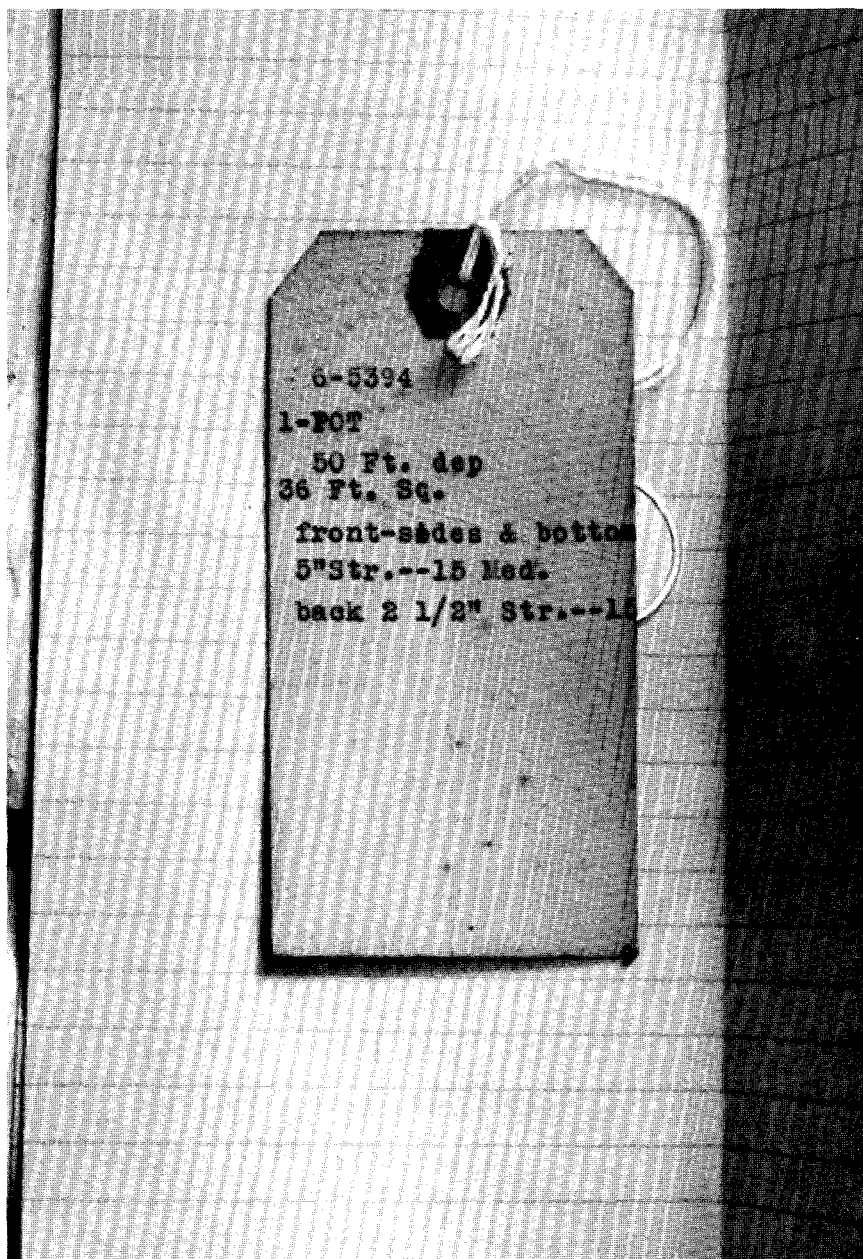 6-5394
1-POT
50 Ft. dep
36 Ft. Sq.
front-sides & bottom
5"Str.--15 Med.
back 2 1/2" Str.--15